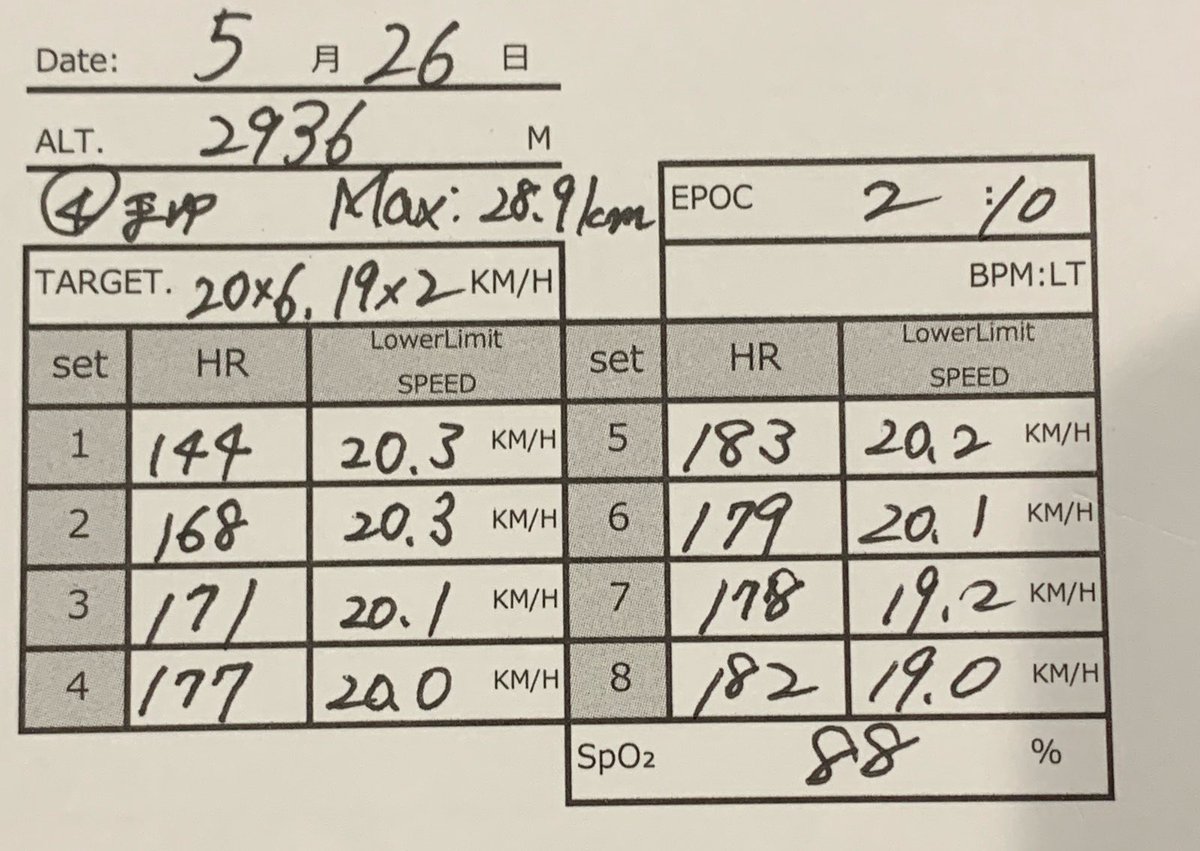 Date: 5 月 26 日
ALT. 2936 M
④ Max: 28.9km
EPOC 2:10
BPM:LT
TARGET. 20×6. 19×2 KM/H
set HR LowerLimit SPEED set HR LowerLimit SPEED
1 144 20.3 KM/H 5 183 20.2 KM/H
2 168 20.3 KM/H 6 179 20.1 KM/H
3 171 20.1 KM/H 7 178 19.2 KM/H
4 177 20.0 KM/H 8 182 19.0 KM/H
SpO2 88 %